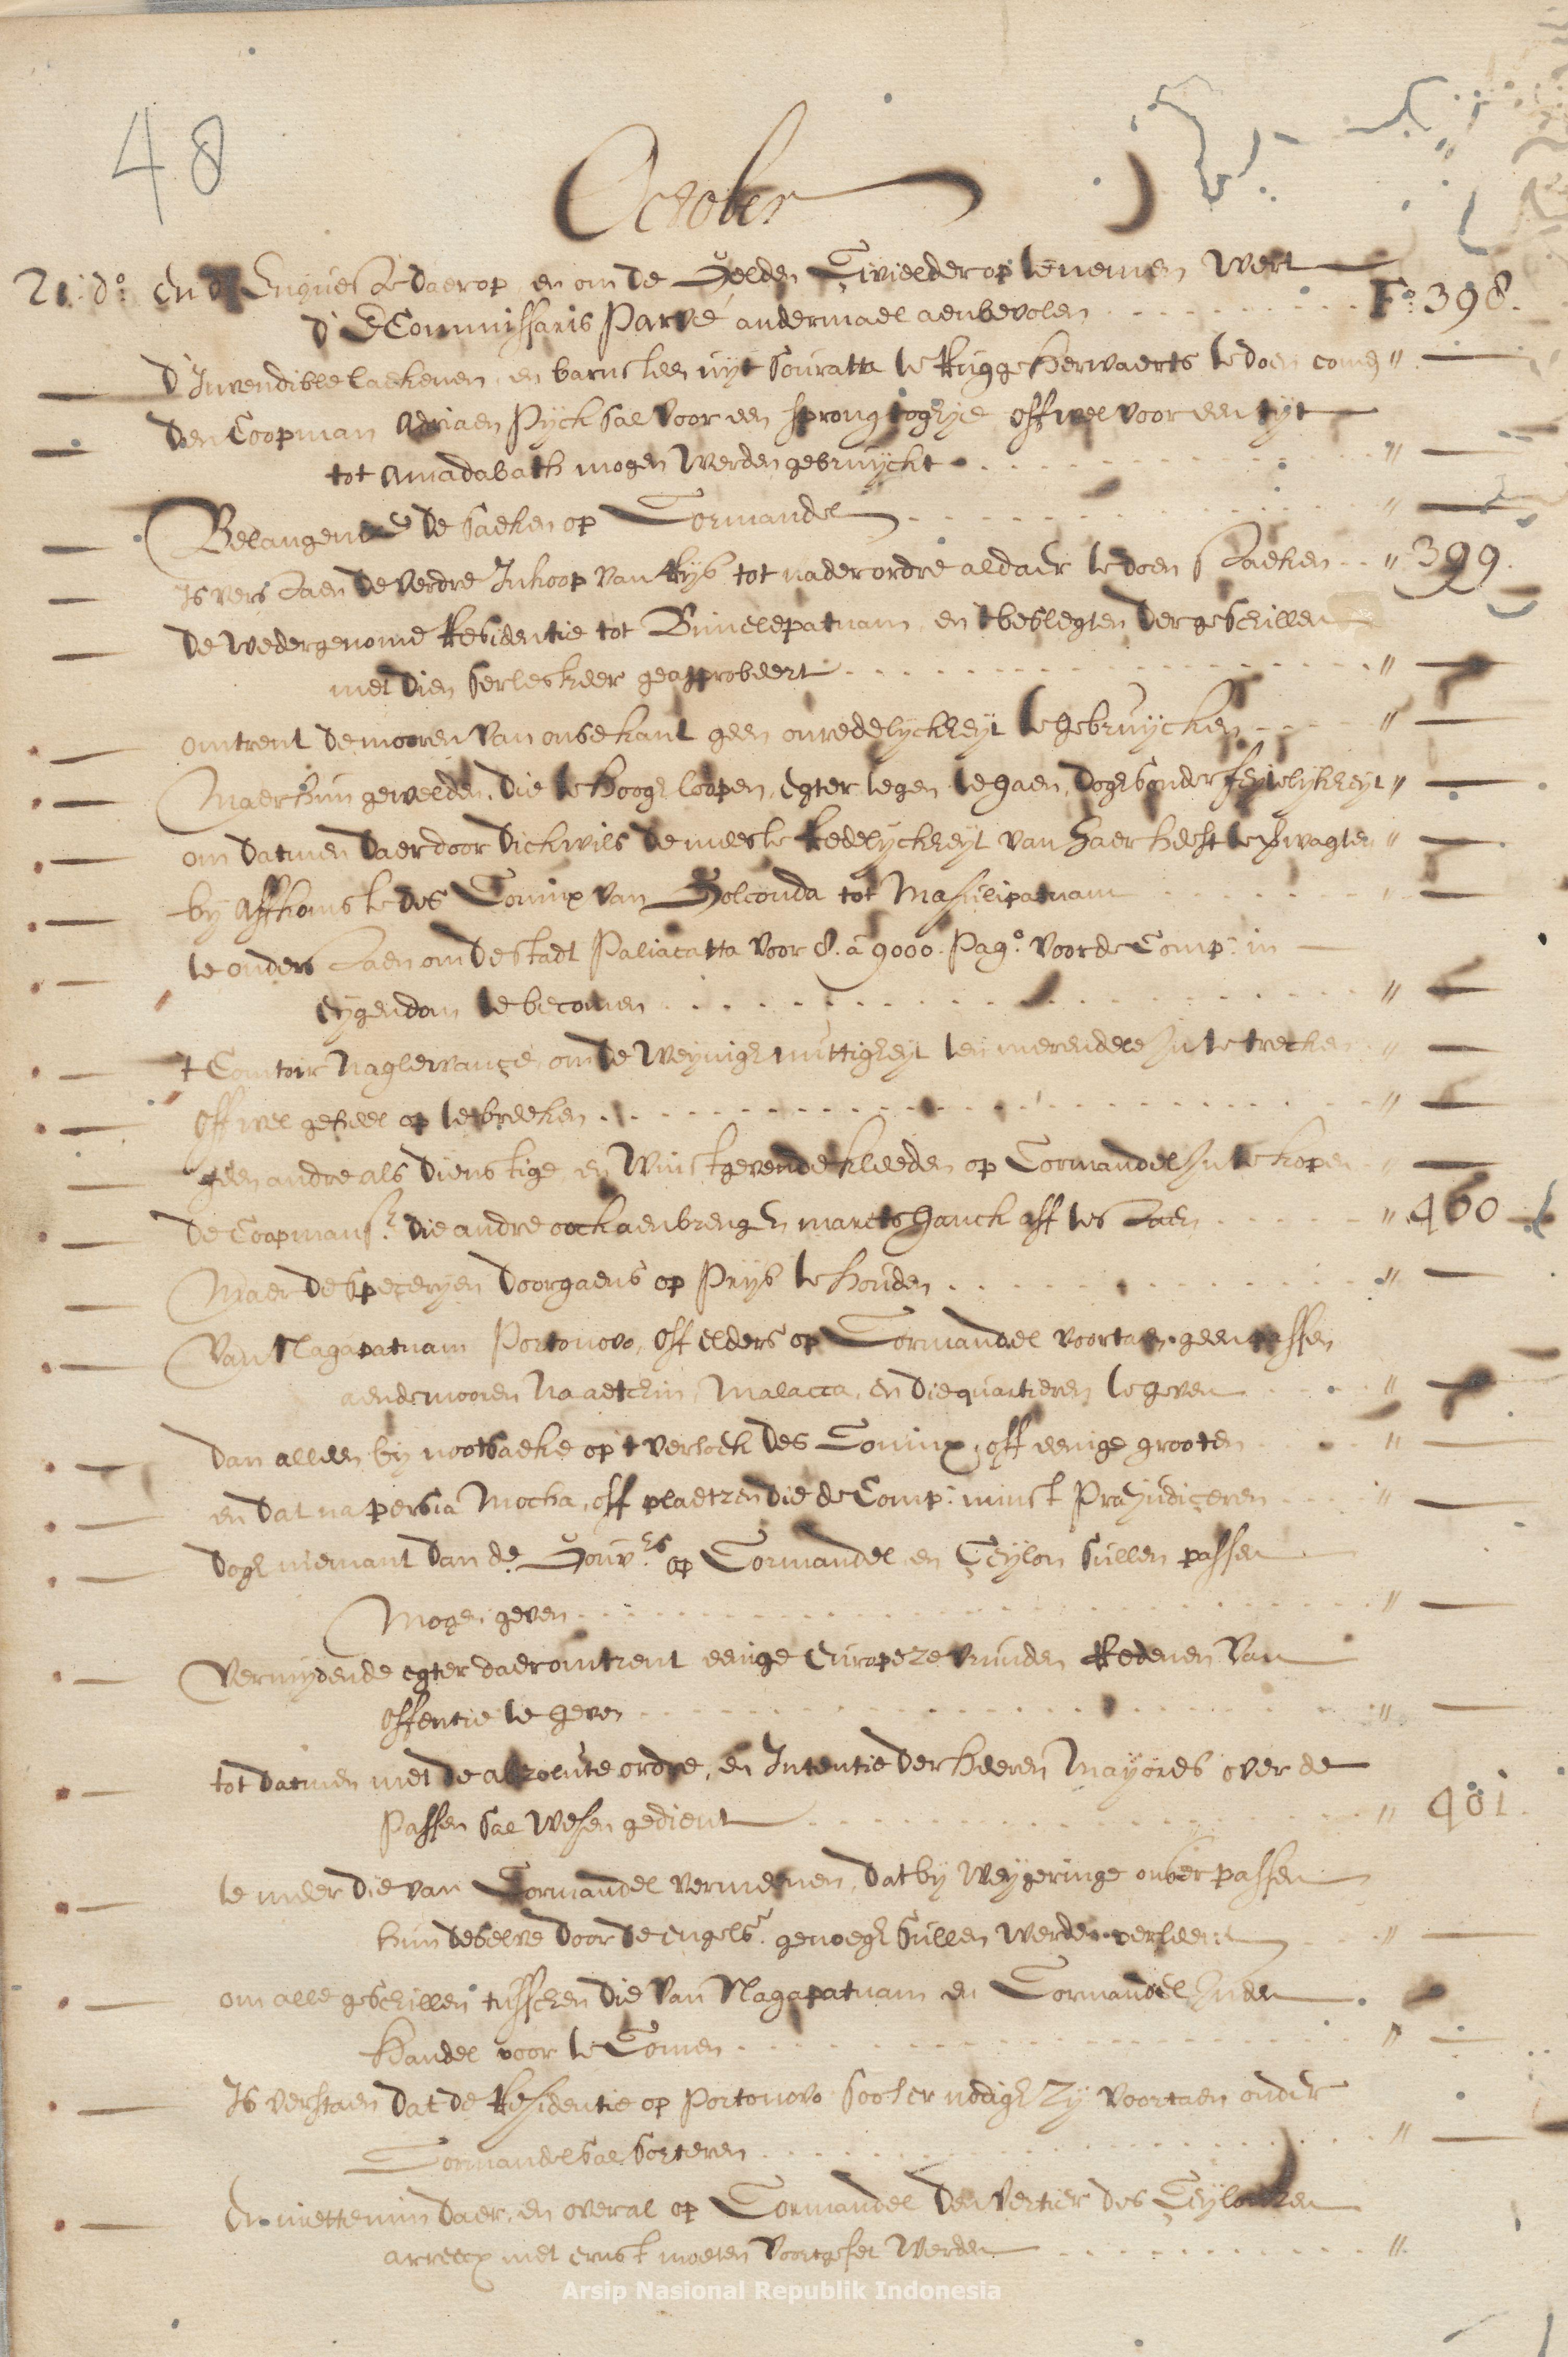 48
October
21: do: en d' Enqueste daerop, en om de Gelden Civielder op te nemen wert Fo: 398.
d' E Commissaris Parvé andermael aenbevolen
d' Invendible laekenen, en barnsteen uyt Souratta te rugge herwaerts te doen comen "
den Coopman Adriaen Pyck sal voor een sprong togtje off wel voor een tyt
tot Amadabath mogen werden gebruyckt "
Belangende de saeken op Cormandel "
Is verstaen de verdre Inkoop van Rys tot nader ordre aldaer te doen staeken " 399.
de wedergenome Residentie tot Bimelepatnam, en 't beslegten der geschillen
met dien serleskeer geapprobeert "
omtrent de mooren van onse kant geen onredelyckheyt te gebruycken "
Maer hun gewelden, die te hoogh loopen, egter tegen te gaen, dogh sonder feytelykheyt "
om datmen daer door dickwils de meeste Redelyckheyt van haer heeft te verwagten "
by affkomste des Coninx van Golconda tot Masulipatnam "
te onderstaen om de stadt Paliacatta voor 8. a 9000. Pago. voor de Comp: in
eygendom te becomen "
't Comtoir Naglewance, om de weynigh nuttigheyt ten merendele In te trecken "
off wel geheel op te breeken "
geen andre als dienstige, en winstgevende kleeden op Cormandel In te kopen "
de Coopmansz: die andre oock aenbrengen marcts ganck aff te staen " 400
Maer de speceryen doorgaens op Prys te houden "
Van Nagapatnam Portonovo, off elders op Cormandel voortaen geen passen
aen de mooren na aetchin, Malacca, en die quartieren te geven "
dan alleen by nootsaeke op 't versoek des Coninx, off eenige grooten "
en dat na persia Mocha, off plaetzen die de Comp: minst Præjudiceren "
dogh niemant dan de Gouvrs op Cormandel en Ceylon sullen passen
mogen geven "
Vermydende egter daeromtrent eenige Europeze vrunden Redenen van
offentie te geven "
tot datmen met de absolute ordre, en Intentie der heeren Mayores over de
Passen sal wesen gedient " 401.
te meer die van Cormandel vermeenen, dat by weygeringe onser passen
hun deselve door de engelse genoegh sullen werden verleent "
om alle geschillen tusschen die van Nagapatnam en Cormandel In den
handel voor te Comen "
Is verstaen dat de Residentie op Portonovo soo 't er nodigh zy voortaen onder
Cormandel sal sorteren "
en niettemin daer, en overal op Cormandel den vertier des Ceylonsen
arreecx met ernst moeten voortgeset werden "
Arsip Nasional Republik Indonesia